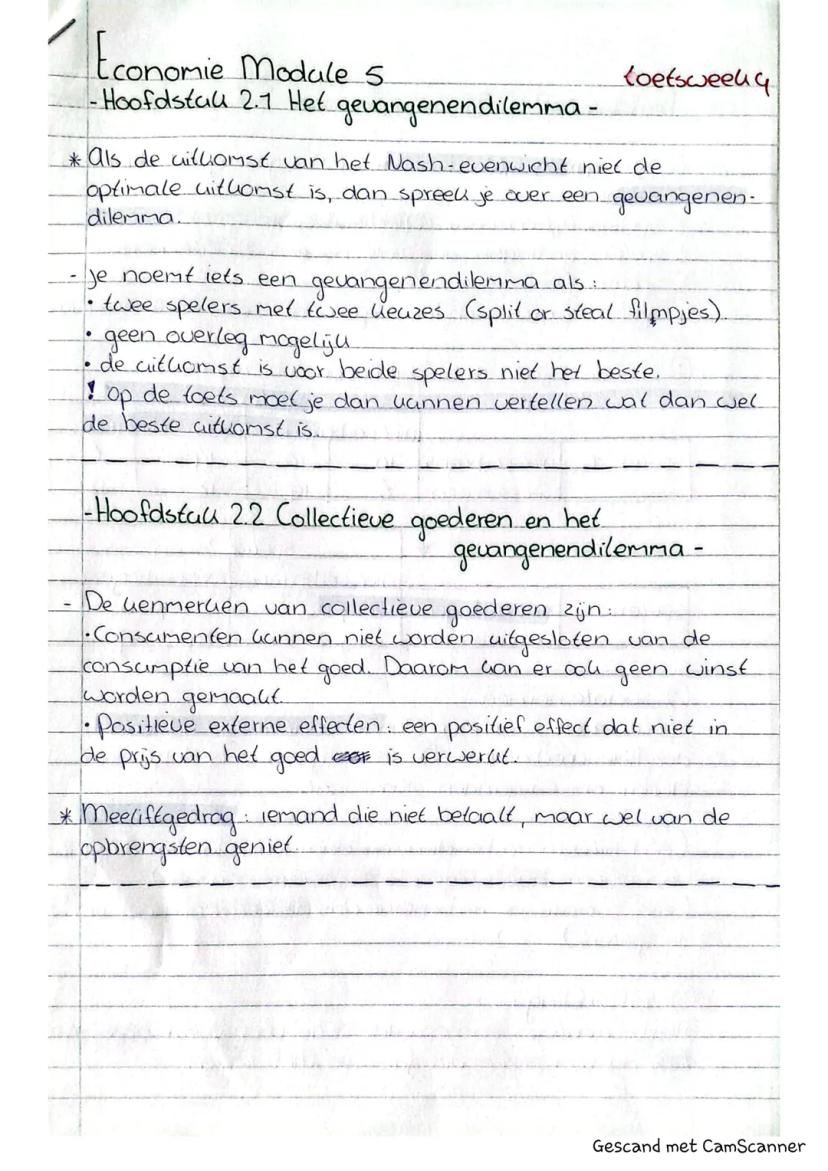 Economie Module 5
toetsweek 4
- Hoofdstuk 2.1 Het gevangenendilemma -
* Als de uitkomst van het Nash-evenwicht niet de
optimale uitkomst is, dan spreek je over een gevangenen-
dilemma.
- Je noemt iets een gevangenendilemma als:
• twee spelers met twee keuzes (split or steal filmpjes).
• geen overleg mogelijk
• de uitkomst is voor beide spelers niet het beste.
! Op de toets moet je dan kunnen vertellen wat dan wel
de beste uitkomst is.
- Hoofdstuk 2.2 Collectieve goederen en het
gevangenendilemma -
- De kenmerken van collectieve goederen zijn:
• Consumenten kunnen niet worden uitgesloten van de
consumptie van het goed. Daarom kan er ook geen winst
worden gemaakt.
• Positieve externe effecten: een positief effect dat niet in
de prijs van het goed is verwerkt.
* Meeliftgedrag: iemand die niet betaalt, maar wel van de
opbrengsten geniet.
Gescand met CamScanner